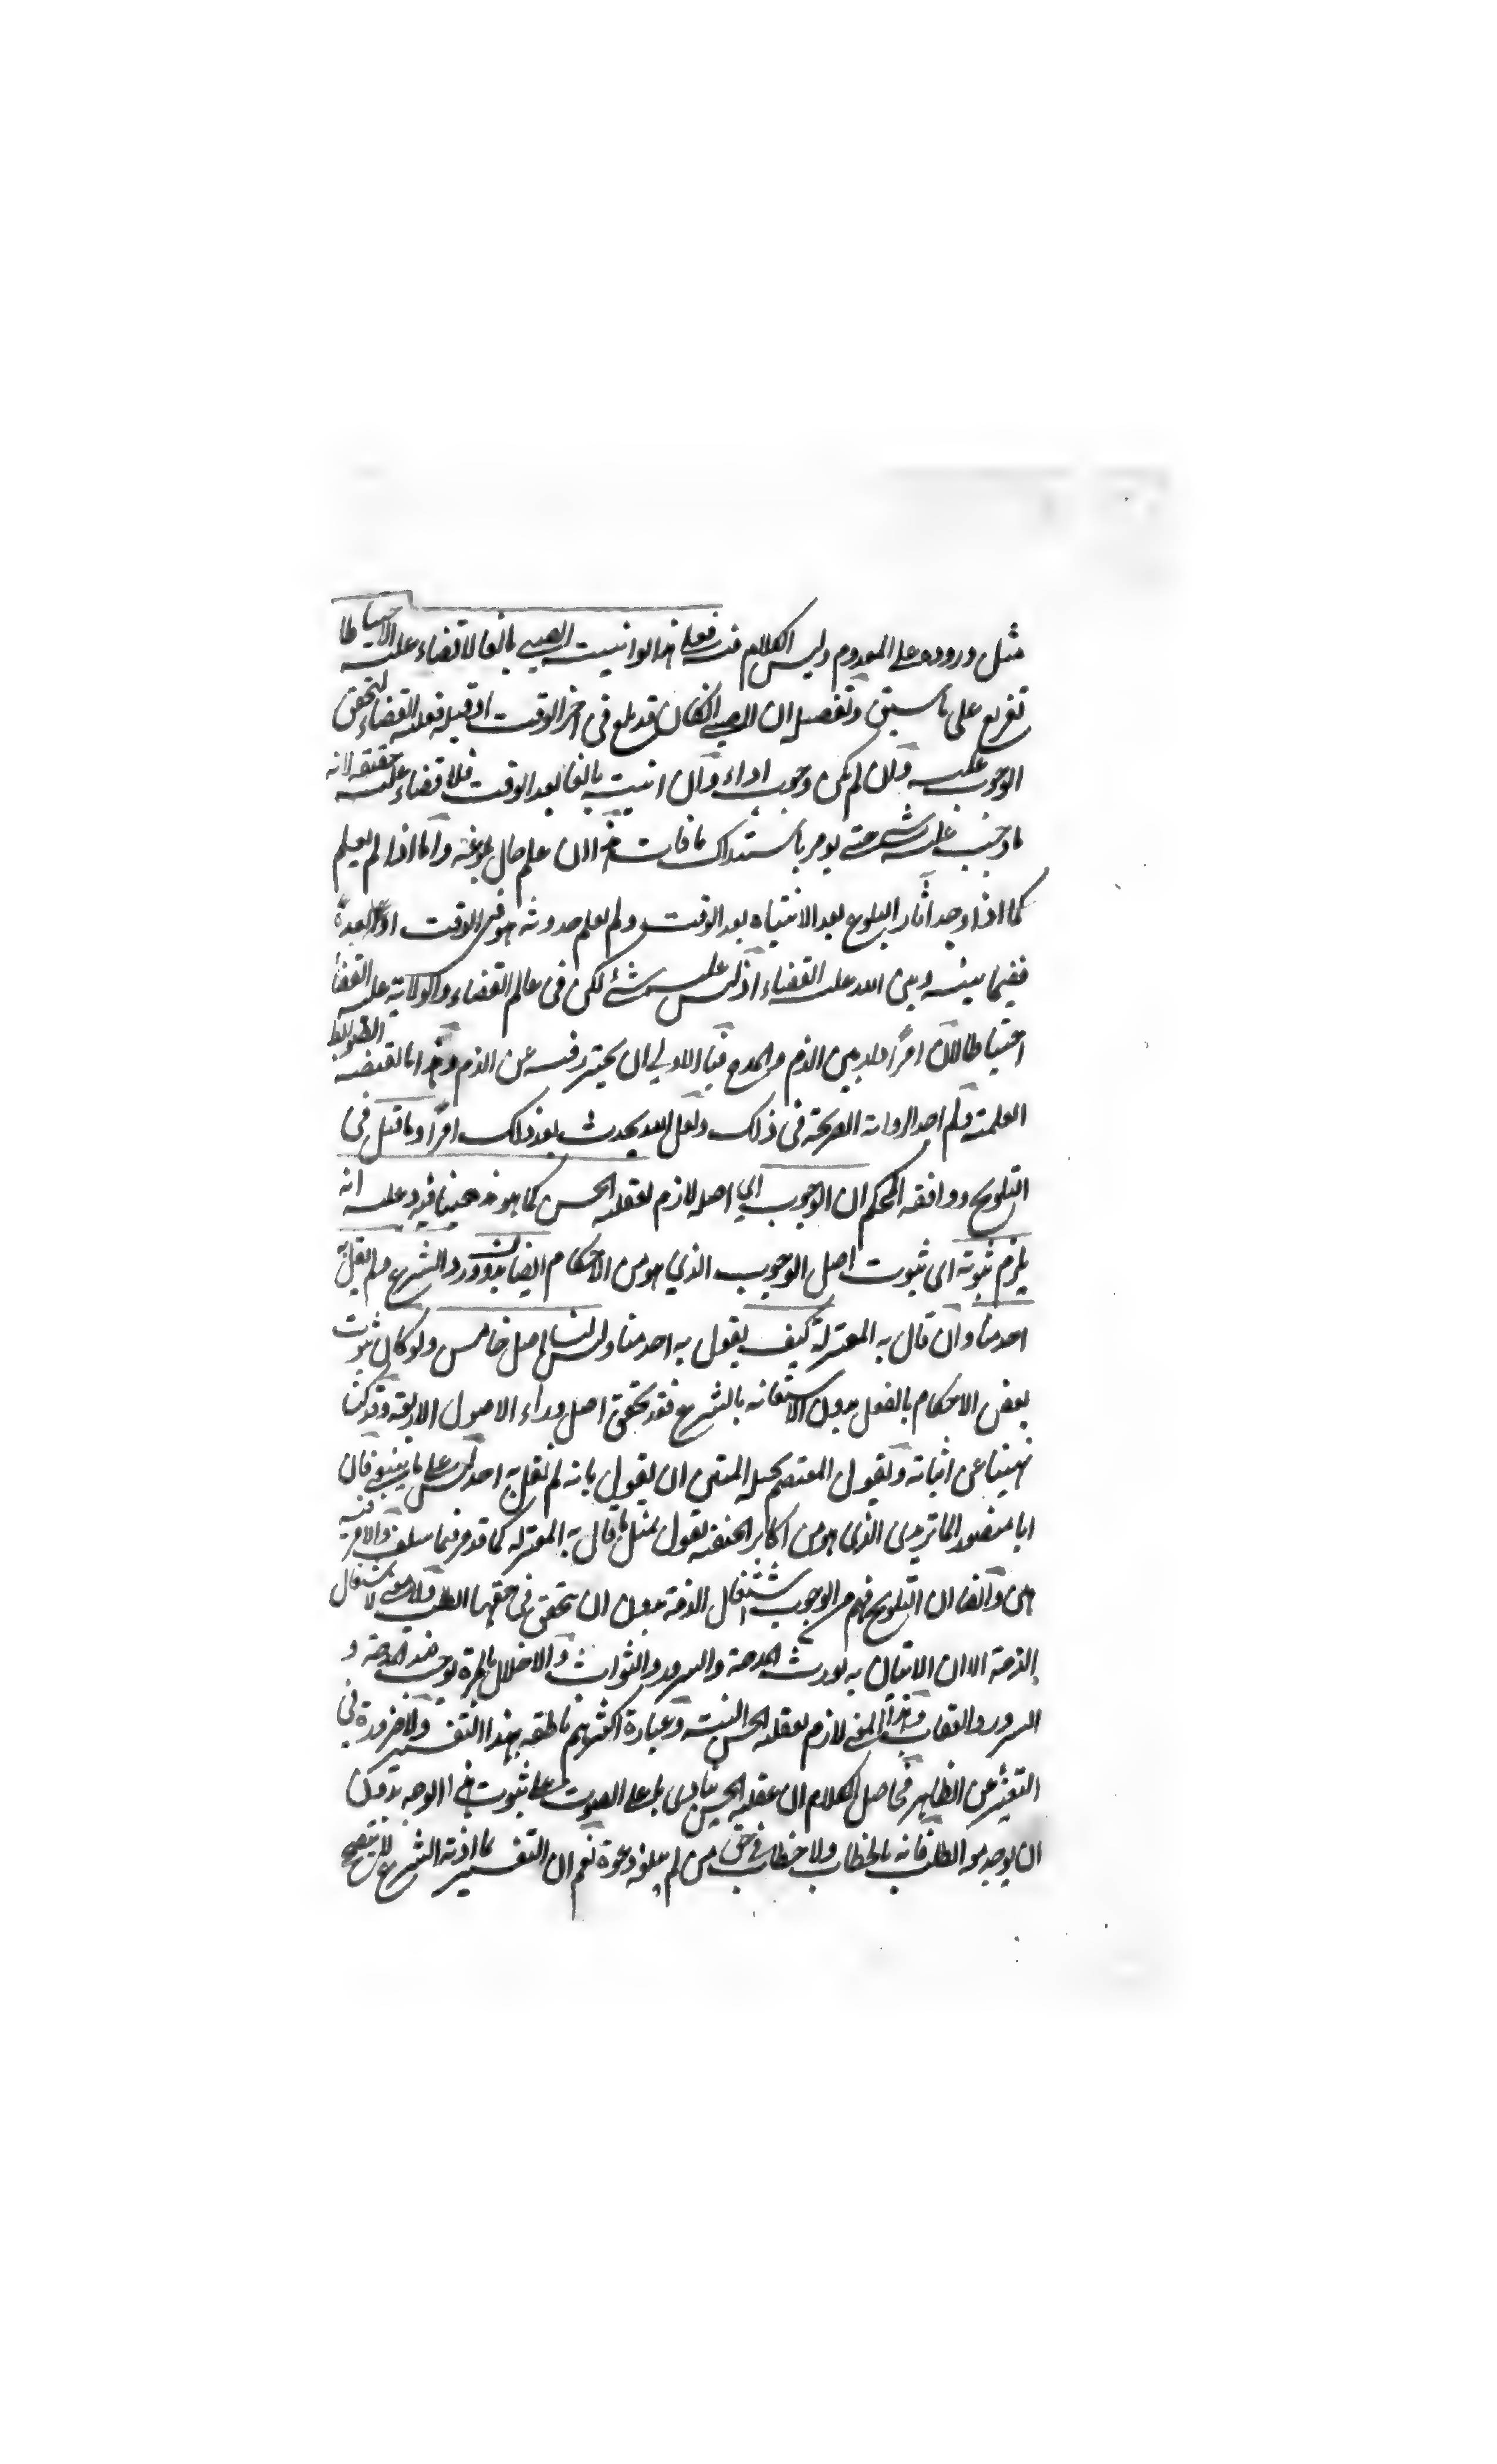 مثل وروده على المعدوم وليس الكلام فيه فعلى هذا لو انتبه الصبي بالغا لا قضاء عليه الا احتياطا
تفريع على ما سبق وتفصيله ان الصبي ان كان قد بلغ في اخر الوقت او قبيله فعليه القضاء لتحقق
الوجوب عليه وان لم يكن وجوب اداء وان انتبه بالغا بعد الوقت فلا قضاء عليه حقيقة لانه
ما وجب عليه شيء حتى يومر باستدراك ما فات هذا ان علم حال بلوغه واما اذا لم يعلم
كما اذا وجد آثار البلوغ بعد الانتباه بعد الوقت ولم يعلم حدوثه هو في الوقت او بعده
ففيما بينه وبين الله عليه القضاء اذ ليس عليه شيء لكن في عالم القضاء والولاية عليه القضاء
احتياطا لان امرا دار بين الذم والمدح فالاولى ان يحترز فيه عن الذم وهذا ما تقتضيه الضوابط
العلمية ولم اجد الرواية الصريحة في ذلك ولعل الله يحدث بعد ذلك امرا وما قيل في
التلويح ووافقه المحكم ان الوجوب اي اصله لازم لعقلية الحسن كما هو مذهبنا فيرد عليه انه
يلزم ثبوته اي ثبوت اصل الوجوب الذي هو من الاحكام ايضا بدون ورود الشرع ولم يقل به
احد منا وان قال به المعتزلة كيف يقول به احد منا وليس لنا اصل خامس ولو كان ثبوت
بعض الاحكام بالعقل بدون الاستعانة بالشرع فقد تحقق اصل وراء الاصول الاربعة وقد كنا
نهينا عن اثباته ويقول المعتصم بحبله المتين ان يقول بانه لم يقل به احد ليس على ما ينبغي فان
ابا منصور الماتريدي الذي هو من اكابر الحنفية يقول بمثل ما قال به المعتزلة كما قد مر فيما سلف والامر فيه
هين وايضا ان التلويح فهم من الوجوب اشتغال الذمة بدون ان يتحقق في حقها الطلب ولا معنى لاشتغال
الذمة الا ان الاتيان به يورث المدحة والسرور والثواب والاخلال بالمرة يوجب ضد المدحة و
السرور والعقاب وهذا المعنى لازم لعقلية الحسن البتة وعبارة اكثرهم ناطقة بهذا التفسير ولا ضرورة في
التعبير عن الظاهر فحاصل الكلام ان عقلية الحسن ينادي باعلى الصوت على ثبوت هذا الوجه بدون
ان يوجد معه الطلب فانه بالخطاب ولا خطاب في حق من لم يبلغه دعوة نعم ان التفسير ما اذنه الشرع لا يتضح